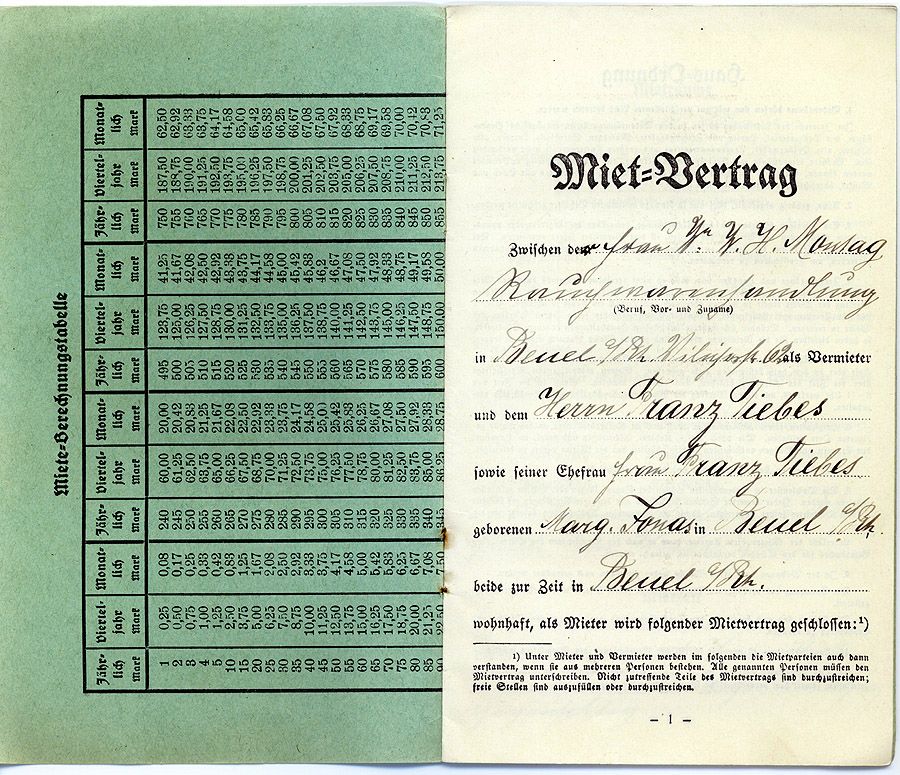 Miete=Berechnungstabelle
Jähr- Viertel- Monat- Jähr- Viertel- Monat- Jähr- Viertel- Monat- Jähr- Viertel- Monat-
lich jahr lich lich jahr lich lich jahr lich lich jahr lich
Mark Mark Mark Mark Mark Mark Mark Mark Mark Mark Mark Mark
1 0,25 0,08 240 60,00 20,00 495 123,75 41,25 750 187,50 62,50
2 0,50 0,17 245 61,25 20,42 500 125,00 41,67 755 188,75 62,92
3 0,75 0,25 250 62,50 20,83 505 126,25 42,08 760 190,00 63,33
4 1,00 0,33 255 63,75 21,25 510 127,50 42,50 765 191,25 63,75
5 1,25 0,42 260 65,00 21,67 515 128,75 42,92 770 192,50 64,17
10 2,50 0,83 265 66,25 22,08 520 130,00 43,33 775 193,75 64,58
15 3,75 1,25 270 67,50 22,50 525 131,25 43,75 780 195,00 65,00
20 5,00 1,67 275 68,75 22,92 530 132,50 44,17 785 196,25 65,42
25 6,25 2,08 280 70,00 23,33 535 133,75 44,58 790 197,50 65,83
30 7,50 2,50 285 71,25 23,75 540 135,00 45,00 795 198,75 66,25
35 8,75 2,92 290 72,50 24,17 545 136,25 45,42 800 200,00 66,67
40 10,00 3,33 295 73,75 24,58 550 137,50 45,83 805 201,25 67,08
45 11,25 3,75 300 75,00 25,00 555 138,75 46,2 810 202,50 67,50
50 12,50 4,17 305 76,25 25,42 560 140,00 46,67 815 203,75 67,92
55 13,75 4,58 310 77,50 25,83 565 141,25 47,08 820 205,00 68,33
60 15,00 5,00 315 78,75 26,25 570 142,50 47,50 825 206,25 68,75
65 16,25 5,42 320 80,00 26,67 575 143,75 47,92 830 207,50 69,17
70 17,50 5,83 325 81,25 27,08 580 145,00 48,33 835 208,75 69,58
75 18,75 6,25 330 82,50 27,50 585 146,25 48,75 840 210,00 70,00
80 20,00 6,67 335 83,75 27,92 590 147,50 49,17 845 211,25 70,42
85 21,25 7,08 340 85,00 28,33 595 148,75 49,58 850 212,50 70,83
90 22,50 7,50 345 86,25 28,75 600 150,00 50,00 855 213,75 71,25
Miet=Vertrag
Zwischen der Frau Ww W. H. Montag
Rauchwarenhandlung
(Beruf, Vor- und Zuname)
in Beuel a/Rh. als Vermieter
und dem Herrn Franz Tiebes
sowie seiner Ehefrau Frau Franz Tiebes
geborenen Marg. Jonas in Beuel a/Rh.
beide zur Zeit in Beuel a/Rh.
wohnhaft, als Mieter wird folgender Mietvertrag geschlossen:¹)
¹) Unter Mieter und Vermieter werden im folgenden die Mietparteien auch dann
verstanden, wenn sie aus mehreren Personen bestehen. Alle genannten Personen müssen den
Mietvertrag unterschreiben. Nicht zutreffende Teile des Mietvertrags sind durchzustreichen;
freie Stellen sind auszufüllen oder durchzustreichen.
— 1 —